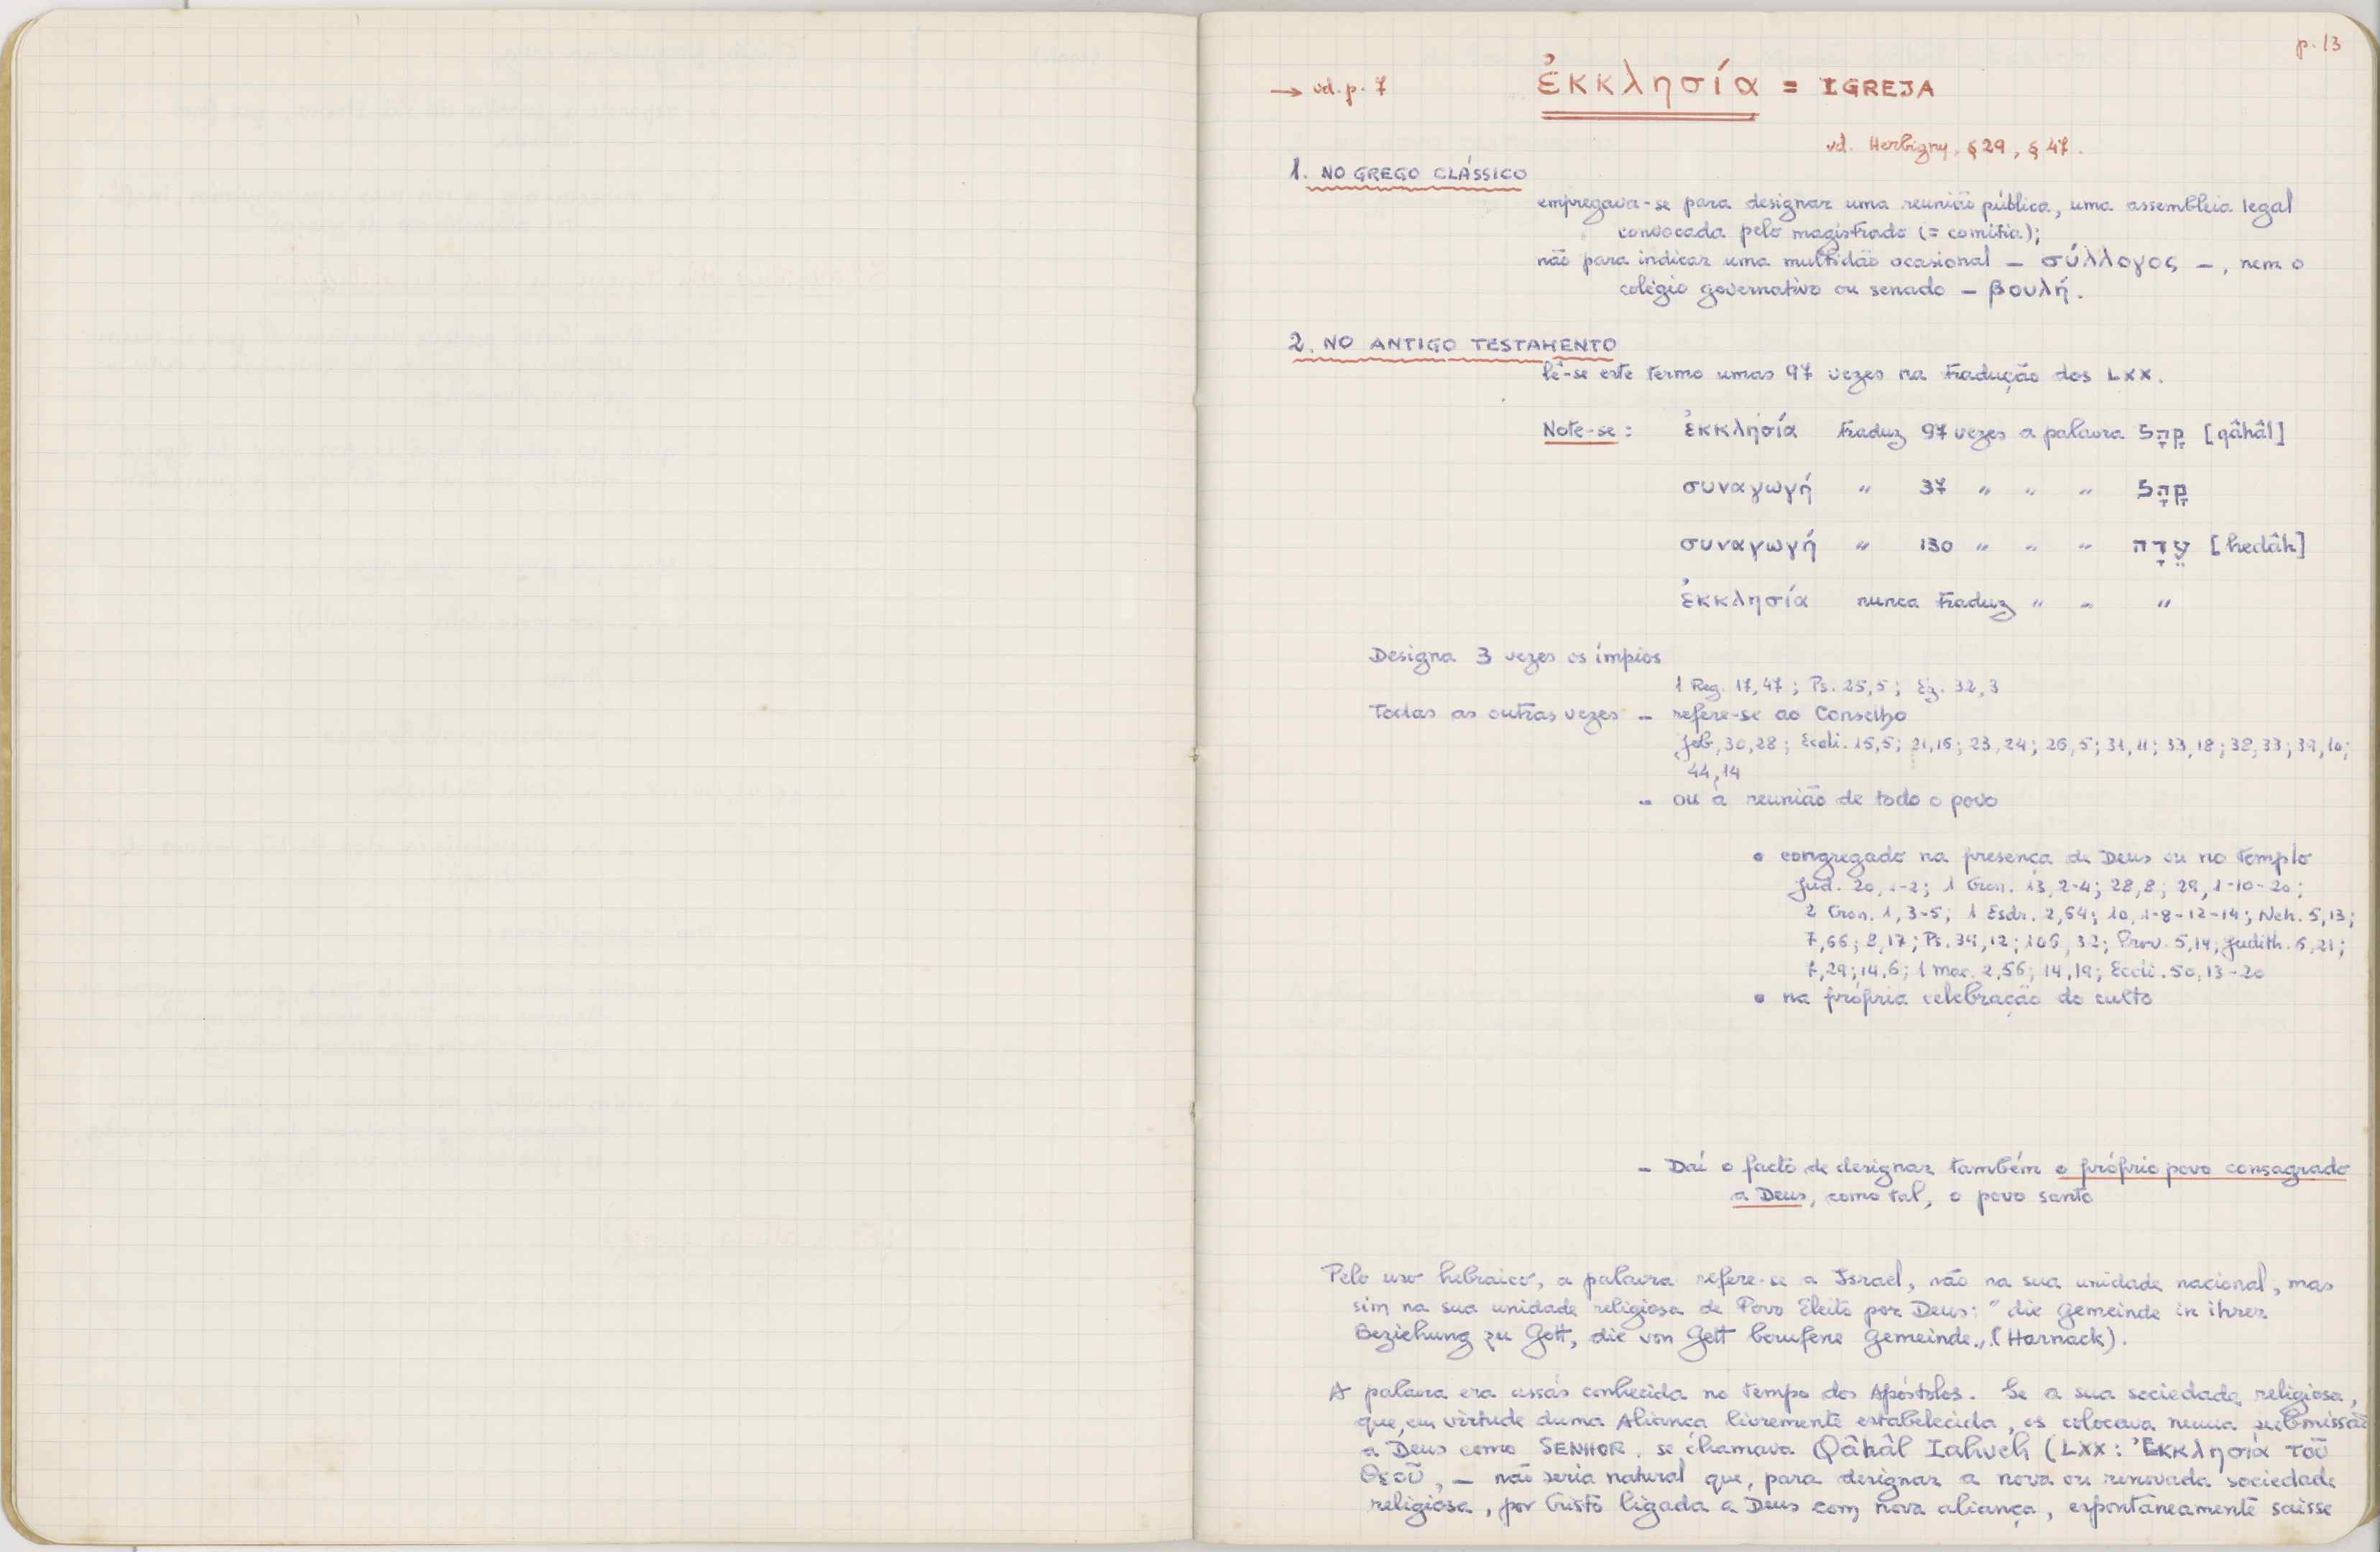 p. 13
→ vd. p. 7 ἐκκλησία = IGREJA
vd. Herbigny, § 29, § 47.
1. NO GREGO CLÁSSICO
empregava-se para designar uma reunião pública, uma assembleia legal
convocada pelo magistrado (= comitia);
não para indicar uma multidão ocasional — σύλλογος —, nem o
colégio governativo ou senado — βουλή.
2. NO ANTIGO TESTAMENTO
lê-se este termo umas 97 vezes na tradução dos LXX.
Note-se: ἐκκλησία traduz 97 vezes a palavra קָהָל [qâhâl]
συναγωγή " 37 " " " קָהָל
συναγωγή " 130 " " " עֵדָה [hedâh]
ἐκκλησία nunca traduz " " "
Designa 3 vezes os ímpios
1 Reg. 17,47; Ps. 25,5; Ez. 32,3
Todas as outras vezes – refere-se ao Conselho
Job, 30,28; Eccli. 15,5; 21,16; 23,24; 26,5; 31,11; 33,18; 38,33; 39,10;
44,14
– ou à reunião de todo o povo
• congregado na presença de Deus ou no templo
Jud. 20, 1-2; 1 Cron. 13, 2-4; 28,8; 29, 1-10-20;
2 Cron. 1, 3-5; 1 Esdr. 2,64; 10, 1-8-12-14; Neh. 5,13;
7,66; 8,17; Ps. 39,12; 106, 32; Prov. 5,14; Judith. 6,21;
7,29; 14,6; 1 Mac. 2,56; 14,19; Eccli. 50, 13-20
• na própria celebração do culto
– Daí o facto de designar também o próprio povo consagrado
a Deus, como tal, o povo santo
Pelo uso hebraico, a palavra refere-se a Israel, não na sua unidade nacional, mas
sim na sua unidade religiosa de Povo Eleito por Deus: "die Gemeinde in ihrer
Beziehung zu Gott, die von Gott berufene Gemeinde„ (Harnack).
A palavra era assás conhecida no tempo dos Apóstolos. Se a sua sociedade religiosa,
que, em virtude duma Aliança livremente estabelecida, os colocava numa submissão
a Deus como SENHOR, se chamava Qâhâl Iahveh (LXX: Ἐκκλησία τοῦ
Θεοῦ, — não seria natural que, para designar a nova ou renovada sociedade
religiosa, por Cristo ligada a Deus com nova aliança, espontâneamente saísse